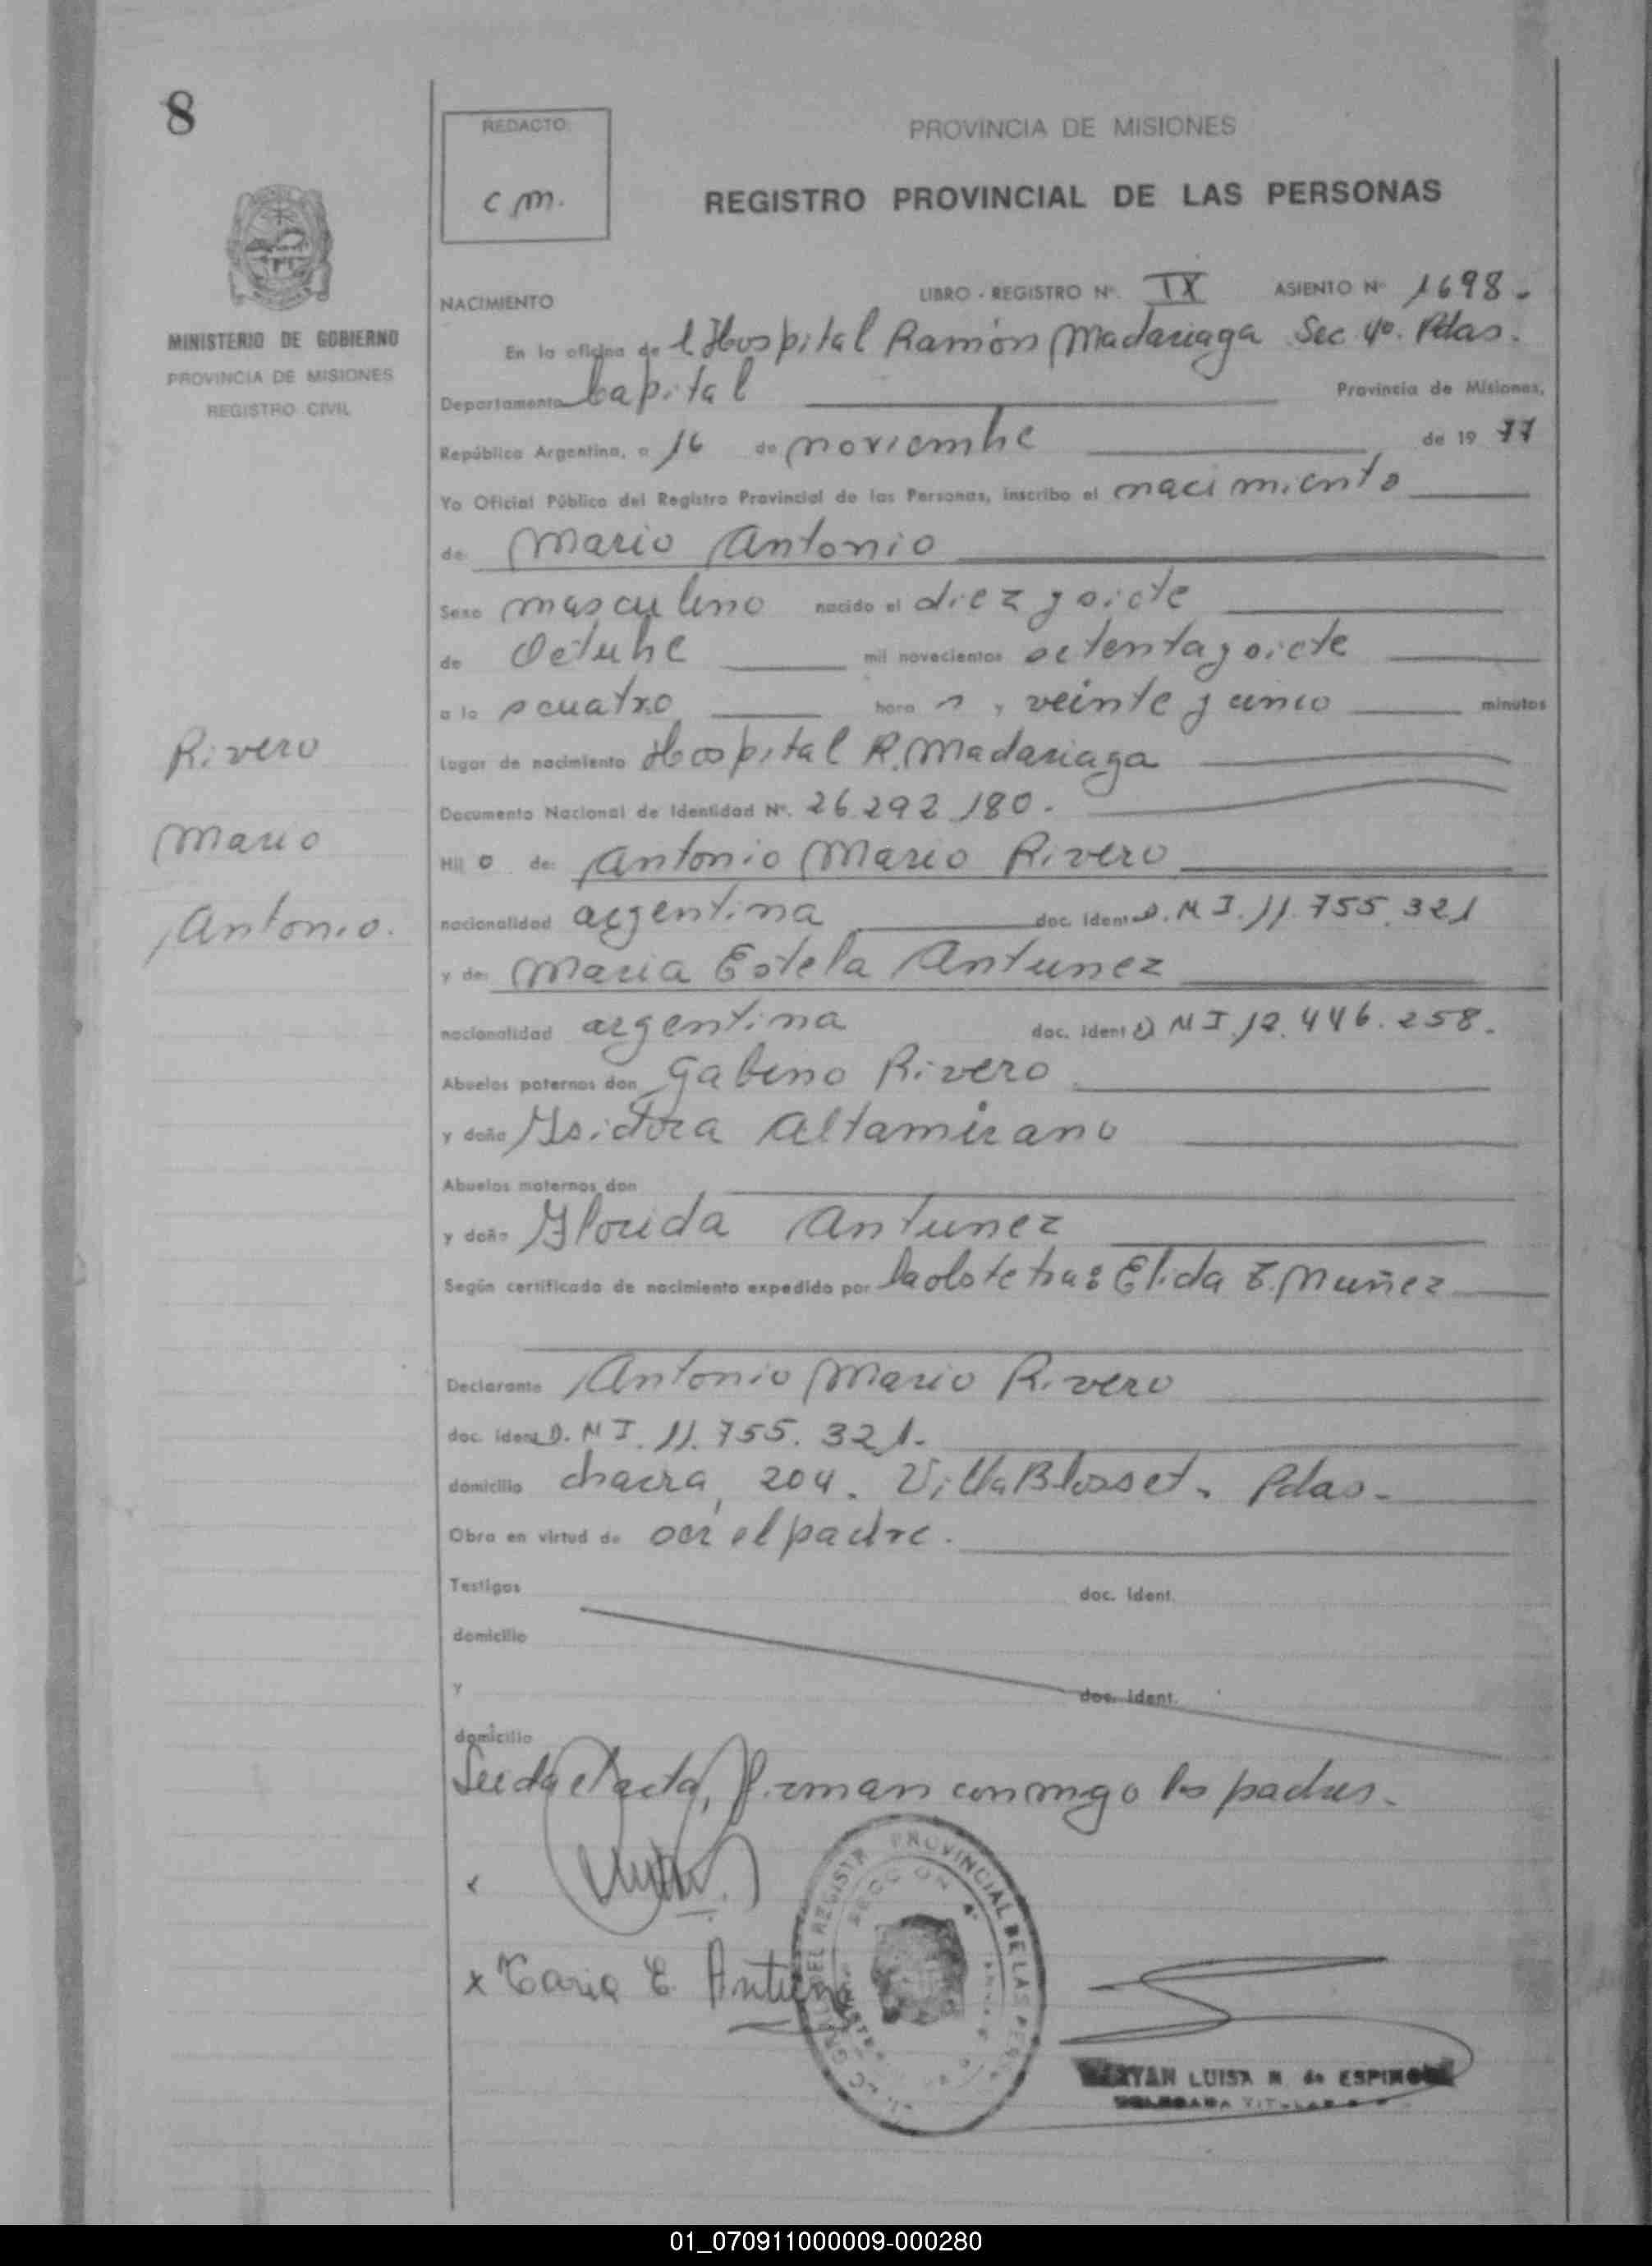 8
REDACTO:
c m.
PROVINCIA DE MISIONES
REGISTRO PROVINCIAL DE LAS PERSONAS
MINISTERIO DE GOBIERNO
PROVINCIA DE MISIONES
REGISTRO CIVIL
NACIMIENTO LIBRO - REGISTRO Nº. IX ASIENTO Nº 1698-
En la oficina de l Hospital Ramón Madariaga Sec 4º. Pdas.
Departamento Capital Provincia de Misiones,
República Argentina, a 16 de noviembre de 19 77
Yo Oficial Público del Registro Provincial de las Personas, inscribo el nacimiento
de Mario Antonio
Sexo masculino nacido el diez y siete
de Octubre mil novecientos setenta y siete
a la s cuatro hora s y veinte y cinco minutos
Lugar de nacimiento Hospital R. Madariaga
Documento Nacional de Identidad Nº. 26.292.180.
Rivero
Mario
Antonio.
Hij o de: Antonio Mario Rivero
nacionalidad argentina doc. ident D.N I. 11.755.321
y de: Maria Estela Antunez
nacionalidad argentina doc. ident D N I.12.446.258.
Abuelos paternos don Gabino Rivero
y doña Ysidora Altamirano
Abuelos maternos don
y doña Florida Antunez
Según certificado de nacimiento expedido por la obstetra: Elida Z. Muñez
Declarante Antonio Mario Rivero
doc. ident D. N I. 11.755.321.
domicilio chacra, 204. Villa Blosset. Pdas.
Obra en virtud de ser el padre.
Testigos doc. Ident.
domicilio
y doc. ident.
domicilio
Leida el acta, firman conmigo los padres.
x
x Maria E. Antunez
REGISTR PROVINCIAL DE LAS PERS
SECCION 4ª
LUISA M. de ESPINOSA
DELEGADA TITULAR
01_070911000009-000280